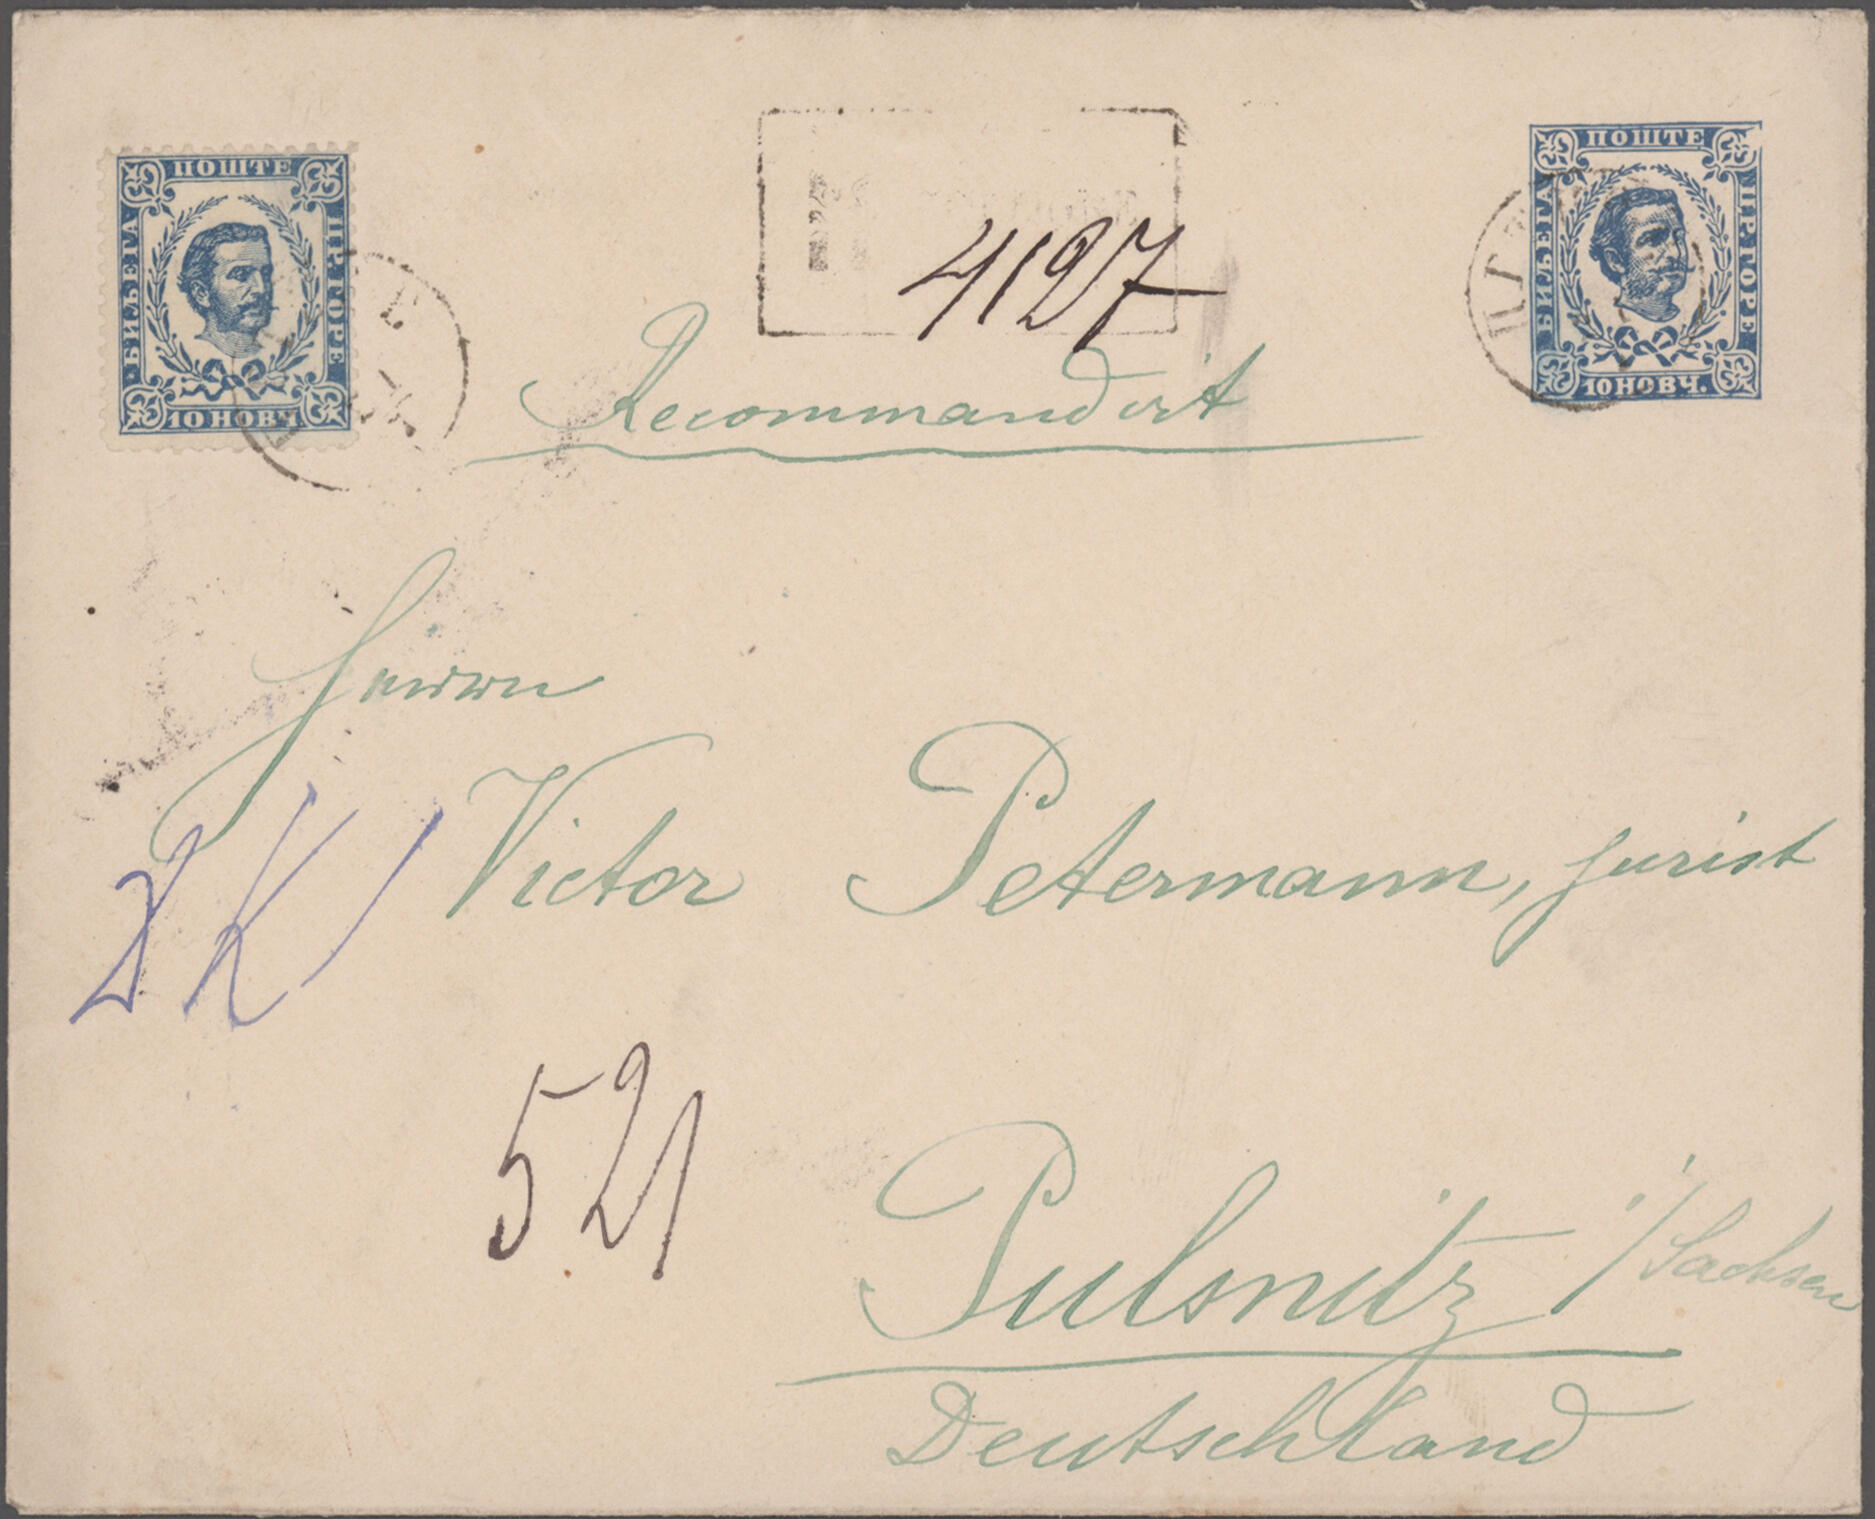 ПОШТЕ
БИЉЕГА
ЦР. ГОРЕ
10 НОВЧ.
ПОШТЕ
БИЉЕГА
ЦР. ГОРЕ
10 НОВЧ.
4127
Recommandirt
Herrn
Victor Petermann, Jurist
521
Pulsnitz i/Sachsen
Deutschland